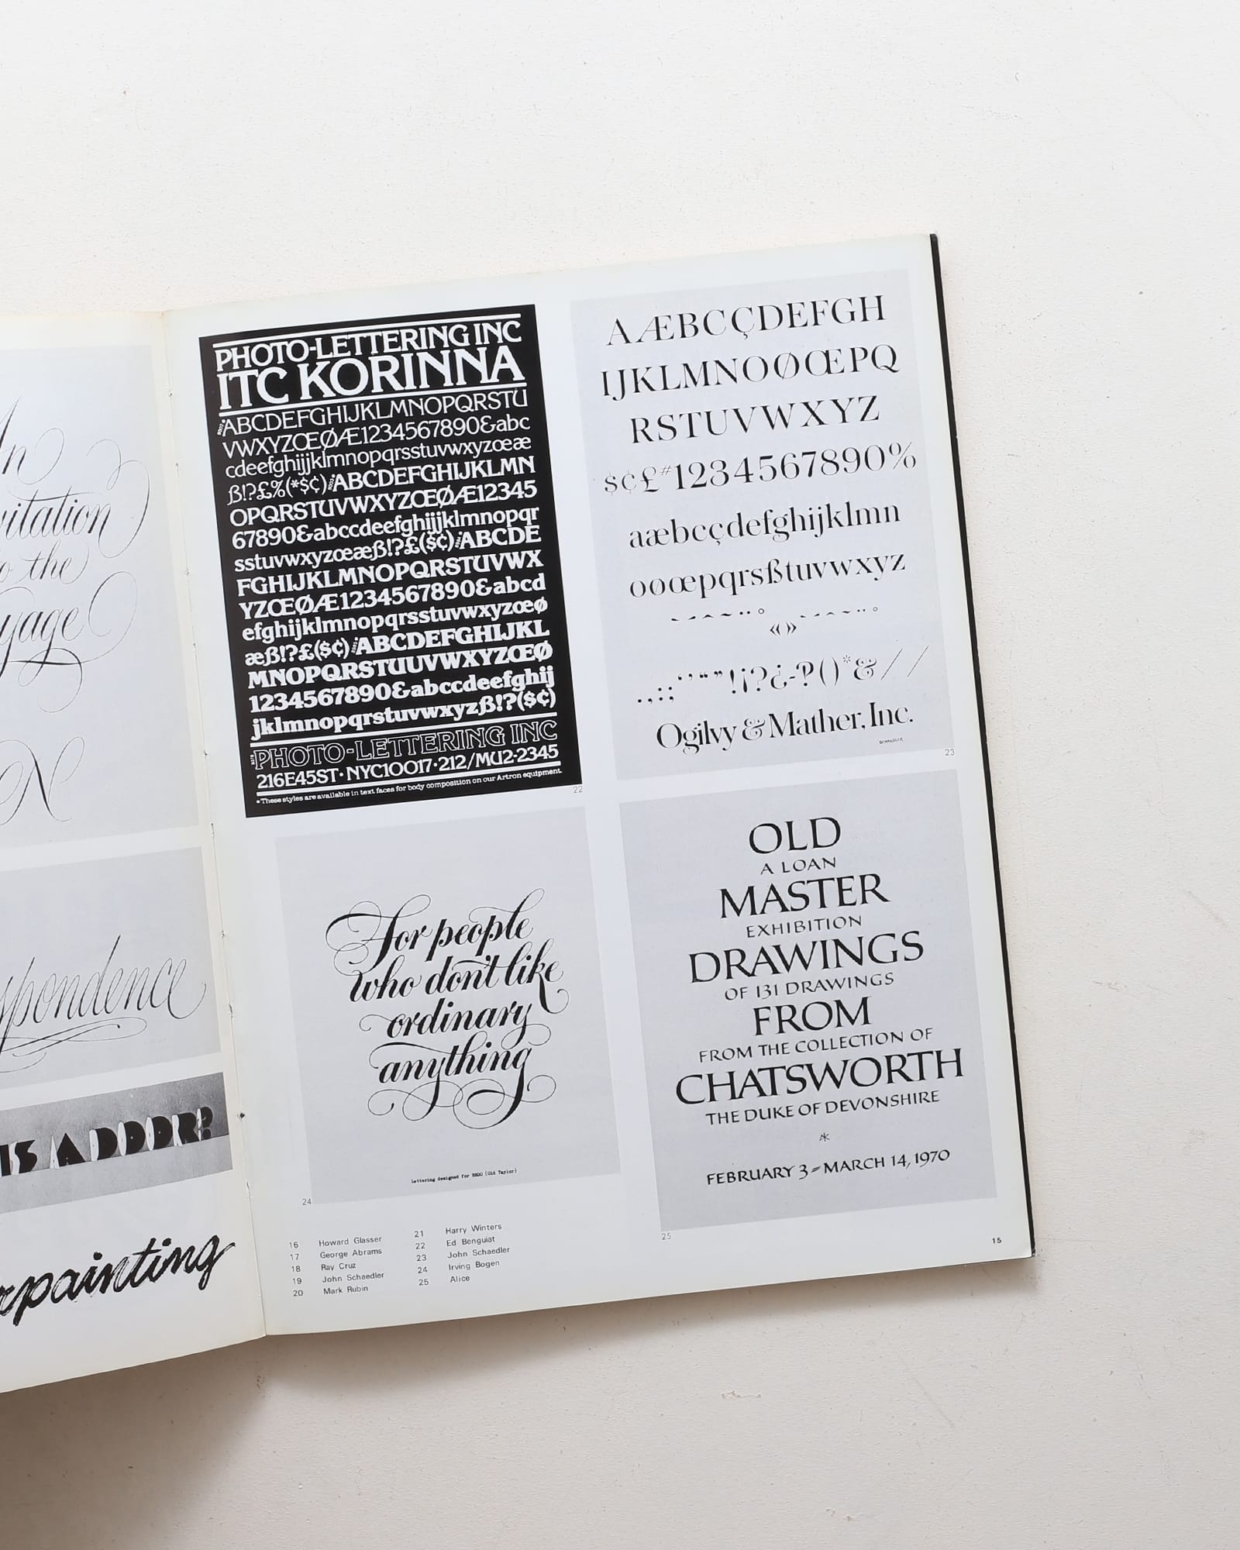 the
IS A DDDR?
PHOTO-LETTERING INC
ITC KORINNA
ABCDEFGHIJKLMNOPQRSTU
VWXYZŒØÆ1234567890&abc
cdeefghijjklmnopqrsstuvwxyzœøæ
ß!?£%(*$¢)ABCDEFGHIJKLMN
OPQRSTUVWXYZŒØÆ12345
67890&abccdeefghijjklmnopqr
sstuvwxyzœøæß!?£($¢)ABCDE
FGHIJKLMNOPQRSTUVWX
YZŒØÆ1234567890&abcd
efghijklmnopqrsstuvwxyzœø
æß!?£($¢)ABCDEFGHIJKL
MNOPQRSTUUVWXYZŒØ
1234567890&abccdeefghij
jklmnopqrstuvwxyzß!?($¢)
PHOTO-LETTERING INC
216E45ST·NYC10017·212/MU2-2345
*These styles are available in text faces for body composition on our Artron equipment.
22
AÆBCÇDEFGH
IJKLMNOØŒPQ
RSTUVWXYZ
$¢£#1234567890%
aæbcçdefghijklmn
oøœpqrsßtuvwxyz
«»
Ogilvy & Mather, Inc.
23
For people
who don't like
ordinary
anything
Lettering designed for BBDO (Old Taylor)
24
OLD
A LOAN
MASTER
EXHIBITION
DRAWINGS
OF 131 DRAWINGS
FROM
FROM THE COLLECTION OF
CHATSWORTH
THE DUKE OF DEVONSHIRE
FEBRUARY 3 - MARCH 14, 1970
25
16 Howard Glasser
17 George Abrams
18 Ray Cruz
19 John Schaedler
20 Mark Rubin
21 Harry Winters
22 Ed Benguiat
23 John Schaedler
24 Irving Bogen
25 Alice
15